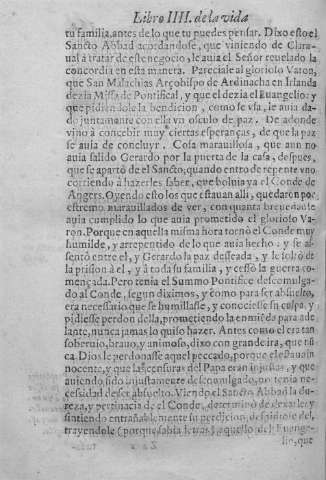 Libro IIII. de la vida
tu familia, antes de lo que tu puedes pensar. Dixo esto el
Sancto Abbad acordandose, que viniendo de Clara-
ual a tratar de este negocio, le auia el Señor reuelado la
concordia en esta manera. Pareciale al glorioso Varon,
que San Malachias Arçobispo de Ardinacha en Irlanda
dezia Missa de Pontifical, y que el dezia el Euangelio: y
que pidiendole la bendicion, como se vsa, le auia da-
do juntamente con ella vn osculo de paz. De adonde
vino à concebir muy ciertas esperanças, de que la paz
se auia de concluyr. Cosa marauillosa, que aun no
auia salido Gerardo por la puerta de la casa, despues,
que se apartò de el Sancto, quando entro de repente vno
corriendo à hazerles saber, que boluia ya el Conde de
Angers. Oyendo esto los que estauan alli, quedaron por
estremo marauillados de ver, con quanta breuedad se
auia cumplido lo que auia prometido el glorioso Va-
ron. Porque en aquella misma hora tornò el Conde muy
humilde, y arrepentido de lo que auia hecho: y se as-
sentò entre el, y Gerardo la paz desseada, y le soltò de
la prision à el, y à toda su familia, y cessò la guerra co-
mençada. Pero tenia el Summo Pontifice descomulga-
do al Conde, segun diximos, y como para ser absuelto,
era necessario que se humillasse, y conociesse su culpa, y
pidiesse perdon della, prometiendo la enmienda para ade
lante, nunca jamas lo quiso hazer. Antes como el era tan
soberuio, brauo, y animoso, dixo con grande ira, que nũ
ca Dios le perdonasse aquel peccado, porque el estaua in
nocente, y que las censuras del Papa eran injustas, y que
auiendo sido injustamente descomulgado, no tenia ne-
cessidad de ser absuelto. Viendo el Sancto Abbad la du-
reza, y pertinacia de el Conde, determinò de dexarle: y
sintiendo entrañablemente su perdicion, despidiose del,
trayendole (porque sabia letras) aquello del Euange-
lio, que